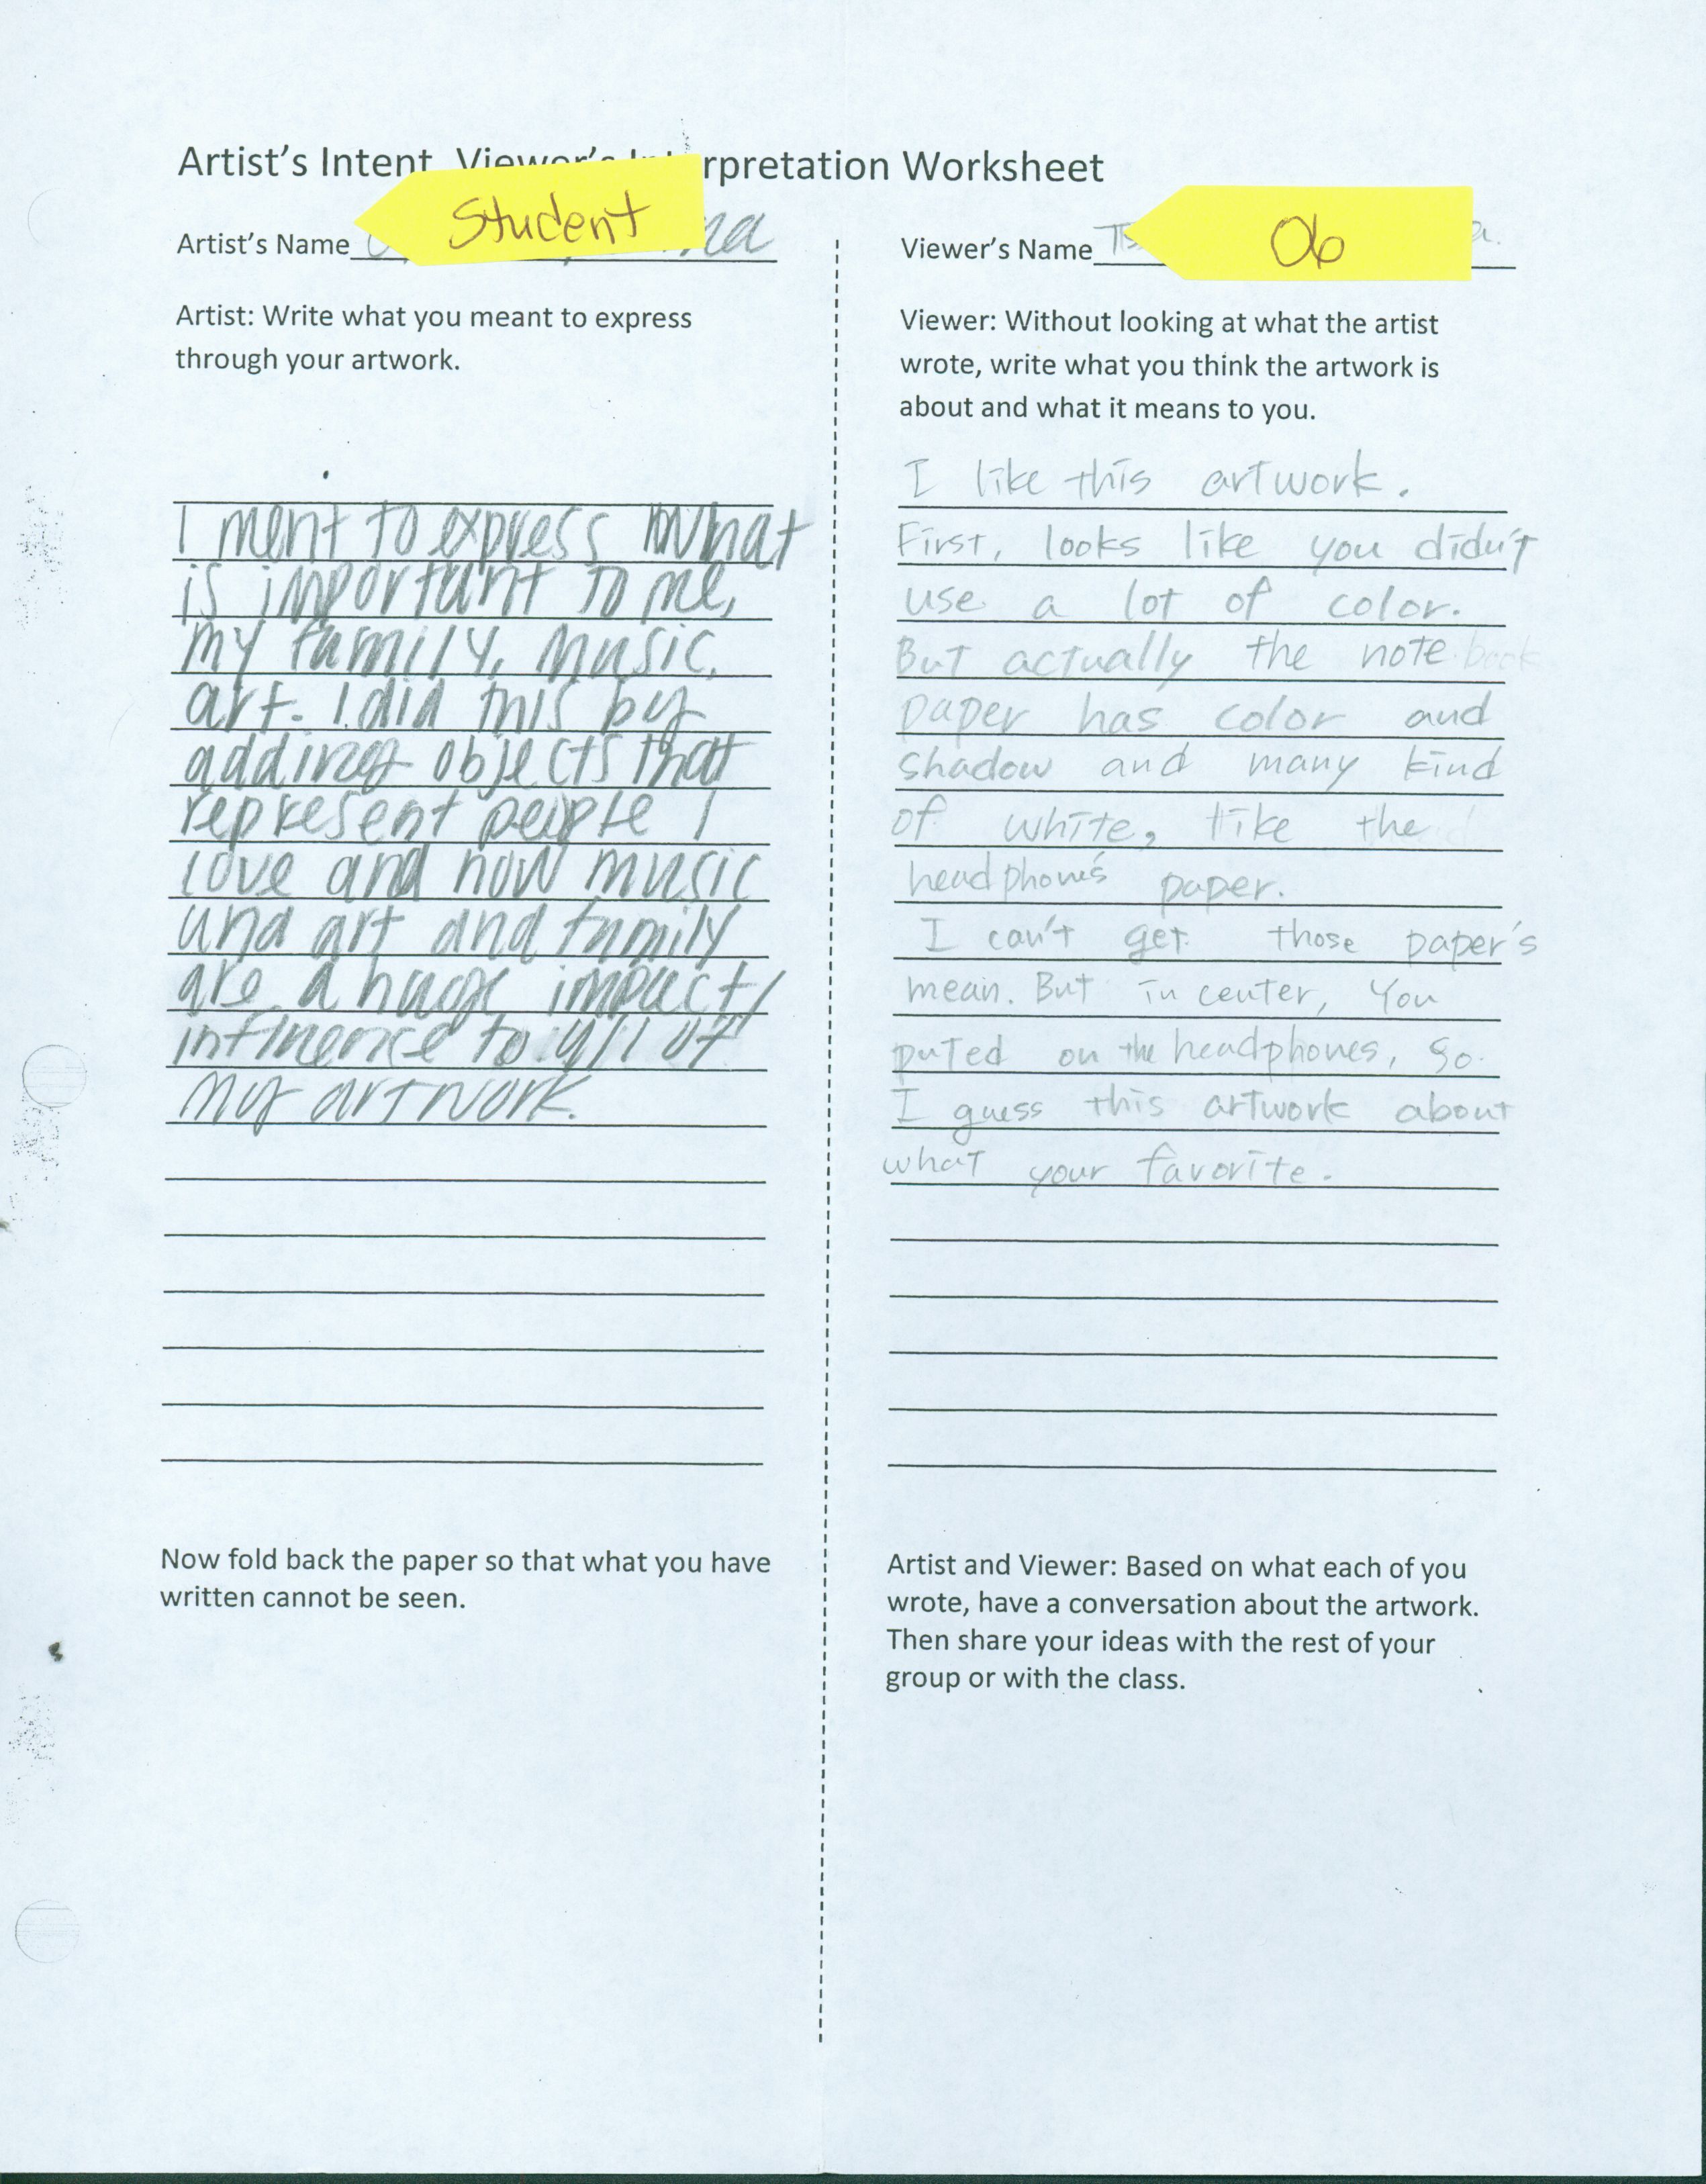 Artist's Intent, Viewer's Interpretation Worksheet
Student
Artist's Name
Artist: Write what you meant to express
through your artwork.
I ment to express what
is important to me,
my family, music,
art. I did this by
adding objects that
represent people I
love and how music
and art and family
are a huge impact/
influence to all of
my artwork.
Now fold back the paper so that what you have
written cannot be seen.
06
Viewer's Name
Viewer: Without looking at what the artist
wrote, write what you think the artwork is
about and what it means to you.
I like this artwork.
First, looks like you didn't
use a lot of color.
But actually the notebook
paper has color and
shadow and many kind
of white, like the
headphone's paper.
I can't get those paper's
mean. But in center, You
puted on the headphones, so
I guess this artwork about
what your favorite.
Artist and Viewer: Based on what each of you
wrote, have a conversation about the artwork.
Then share your ideas with the rest of your
group or with the class.